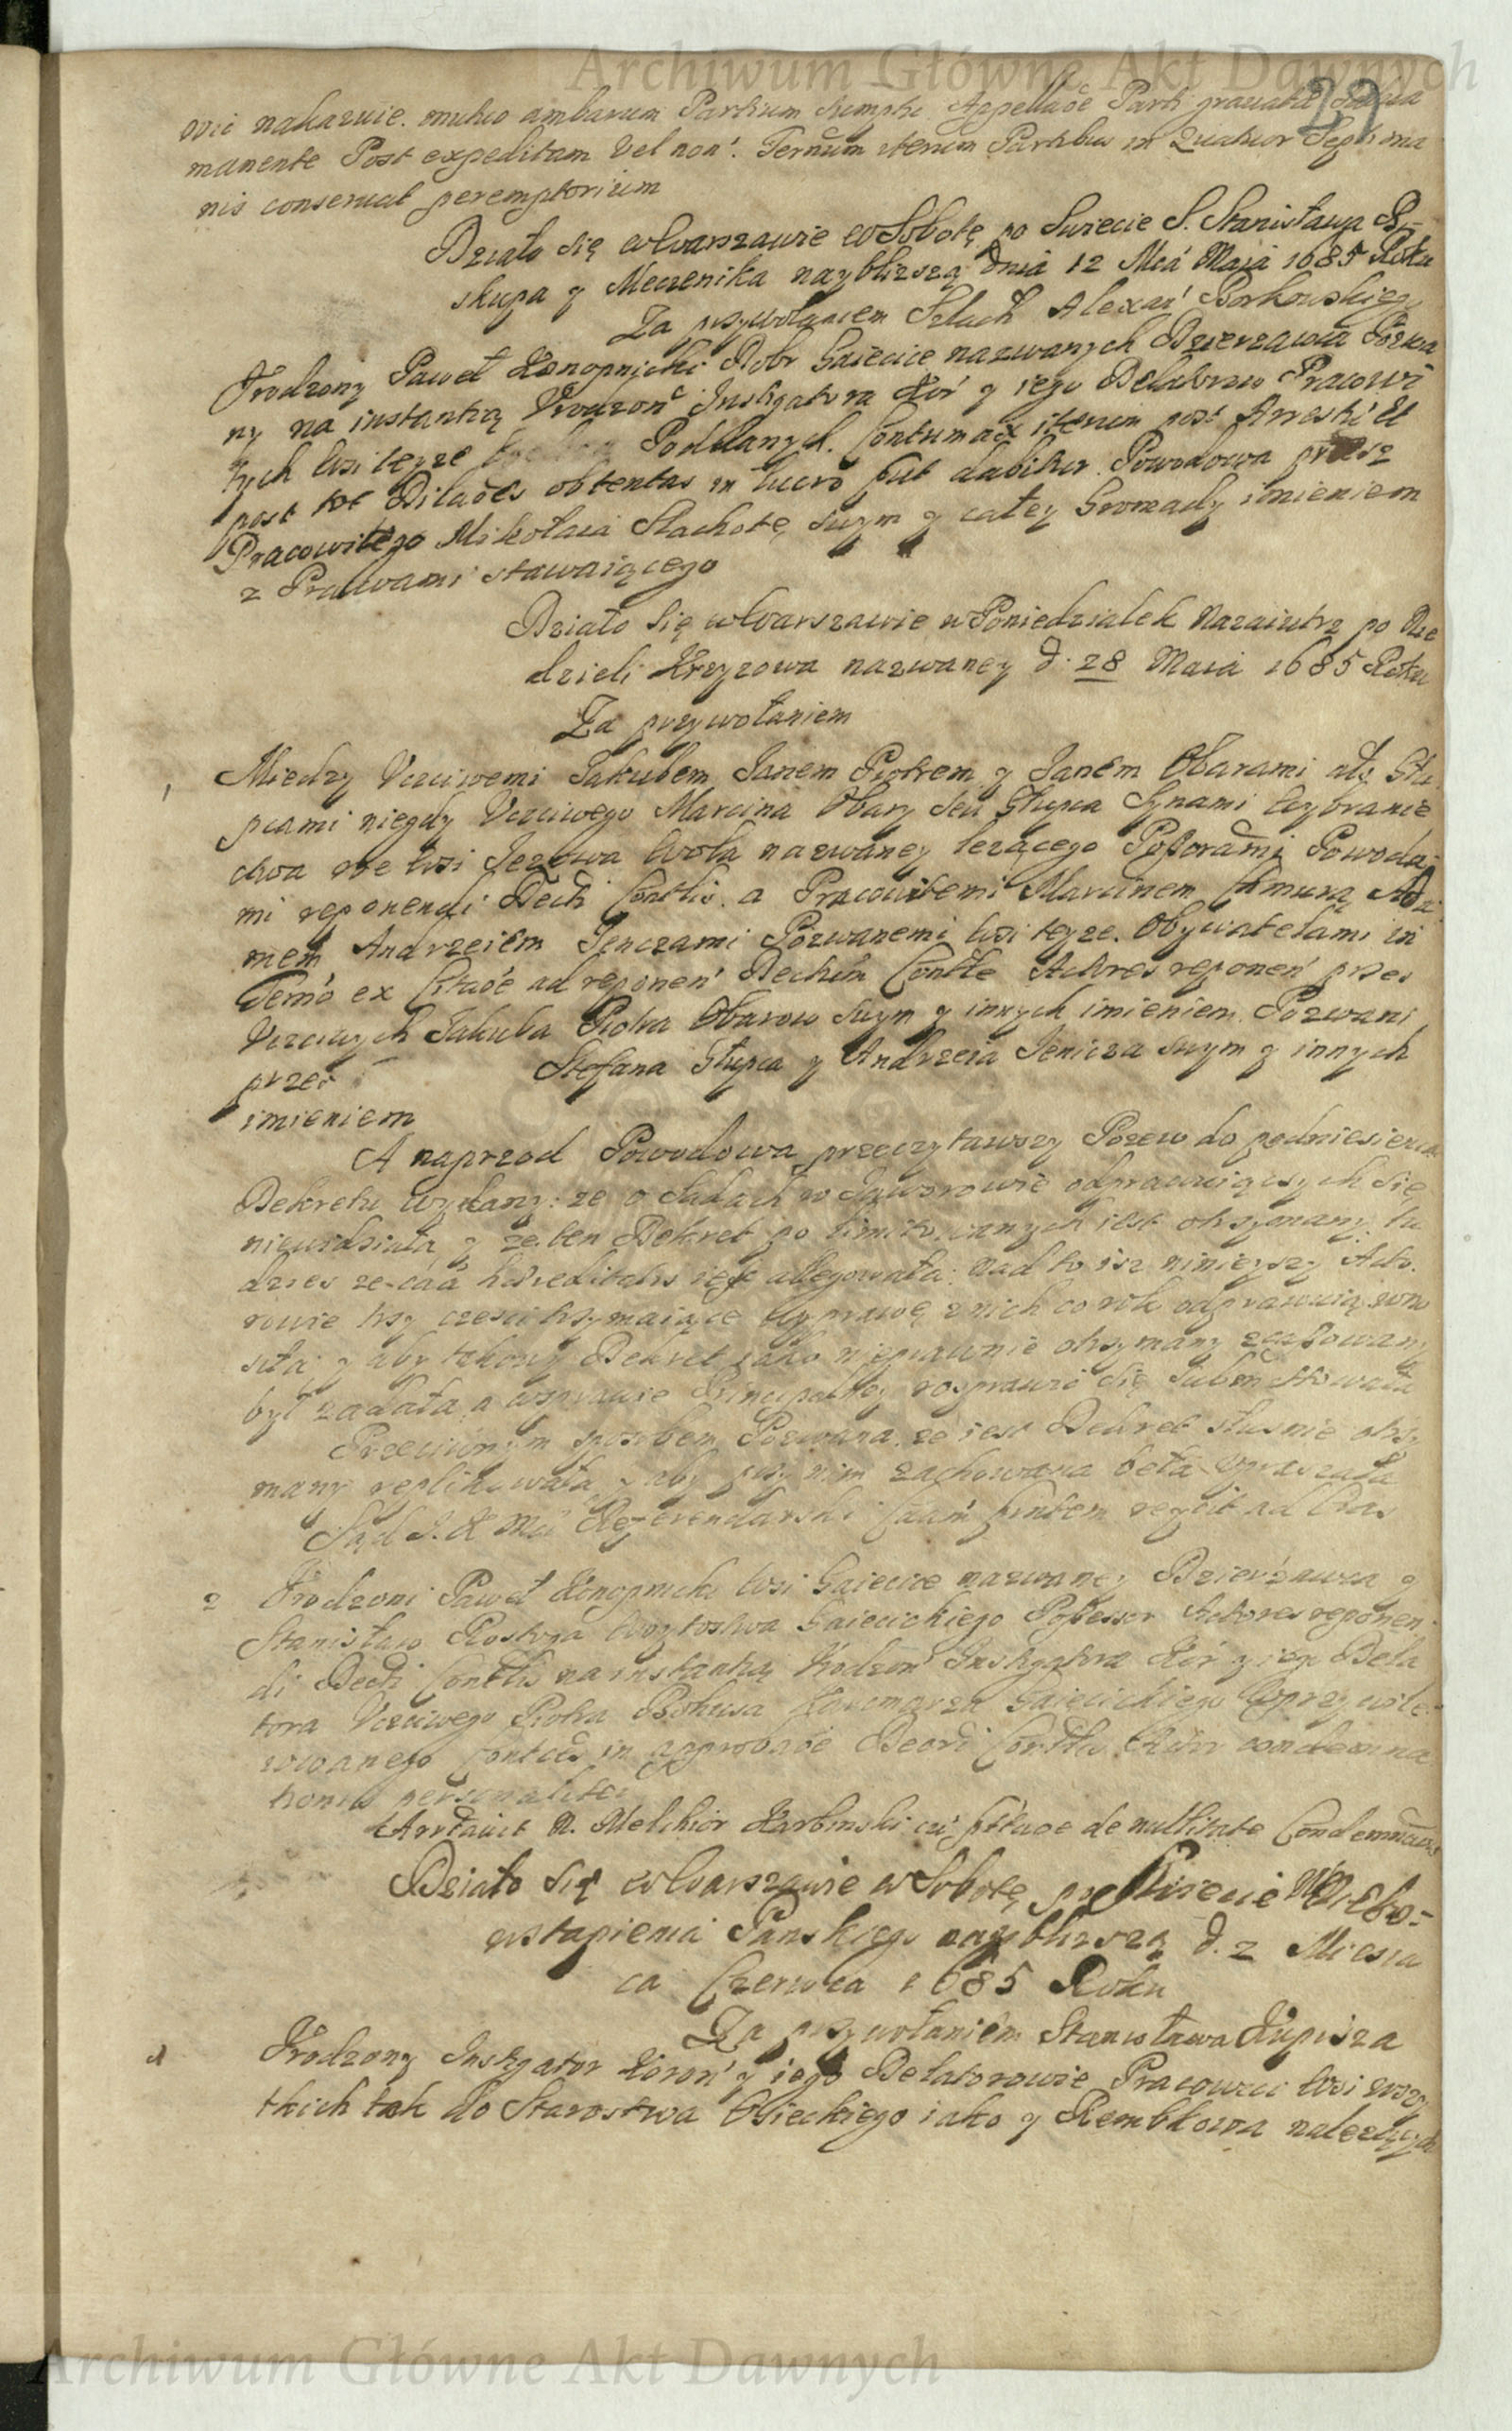 Archiwum Główne Akt Dawnych
29
owie nakazuie. mutuo ambarum Partium sumptu Appellaõe Parti gravatæ salva
manente Post expeditam vel non. Ternum iterum Partibus in Quatuor Septima
nis conservat peremptorium
Działo się w Warszawie w Sobotę po Swiecie S. Stanisława Bi-
skupa y Męczenika nayblizszą dnia 12 Mcá Maia 1685 Roku
Za przywołaniem Szlach Alexan Borkowskiego
Urodzony Paweł Konopnicki Dobr Gaiecice nazwanych Dzierzawca Pozwa
ny na instantią Urodzon Instigatora Kor y iego Delatorow Pracowi
tych wsi teyze Poddanych. Contumax iterum post Arresti et
post tot Dilaões obtentas in lucro put dabitur. Powodowa przez
Pracowitego Mikołaia Stachotę swym y całey Gromady imieniem
z Prawami stawaiącego
Działo się w Warszawie w Poniedziałek nazaiutrz po Nie
dzieli Krzyzowa nazwaney d. 28 Maia 1685 Roku
Za przywołaniem
1 Miedzy Uczciwemi Jakubem Janem Piotrem y Janem Obarami als Głu
pcami niegdy Uczciwego Marcina Obary seu Głupca Synami Wybranie
ctwa we wsi Jezowa Wola nazwaney lezącego Possorami Powoda
mi reponendi Decti Conttis. a Pracowitemi Marcinem Chmurą Ada
mem Andrzeiem Jenczami Pozwanemi wsi teyze. Obywatelami in
Termo ex Citaõe ad reponen Dectum Conttle Actores reponen przez
Uczciwych Jakuba Piotra Obarow swym y innych imieniem. Pozwani
przez Stefana Głupca y Andrzeia Jenicza swym y innych
imieniem
A naprzod Powodowa przeczytawszy Pozew do podniesienia
Dekretu wydany: ze o Sadach w Jaworowie odprawuiących się
niewidziała y ze ten Dekret po limitowanych iest otrzymany tu
dziez ze caã hæreditatis iest allegowała: nad to isz ninieyszy Acto
rowie trzy czesci trzymaiące Wyprawę z nich co rok odprawuią wno
siła: y aby takowy Dekret iako nieprawnie otrzymany zcassowany
był ządała a w sprawie Principalney rosprawic się submittowała
Przeciwnym sposobem Pozwana, ze iest Dekret słusnie otrzy
many replikowała y aby przy nim zachowana beła upraszała
Sąd J. K Mci Referendarski Caãm pntem reycit ad Cras
2 Urodzoni Paweł Konopnicki wsi Gaiecice nazwaney Dzierzawca y
Stanisław Rostrza Woytostwa Gaiecickiego Possessor Actores reponen
di Decti Conttis na instantią Urodzon Instigatora Kor y iego Dela
tora Uczciwego Piotra Karczmarza Gaiecickiego Uprzywile
iowanego Conttes in approbaõe Decti Conttis condemna
tionis personaliter
Arrtavit N. Melchior Karbinski de nullitate Condemnaõis
Działo się w Warszawie w Sobotę po Swiecie W Niebo=
wstapienia Panskiego nayblizszą d. 2 Miesia
ca Czerwca 1685 Roku
Za przywołaniem Stanisława Kupisza
1 Urodzony Instygator Koron y iego Delatorowie Pracowici wsi wszy
tkich tak do Starostwa Osieckiego iako y Rembkowa nalezących
Archiwum Główne Akt Dawnych